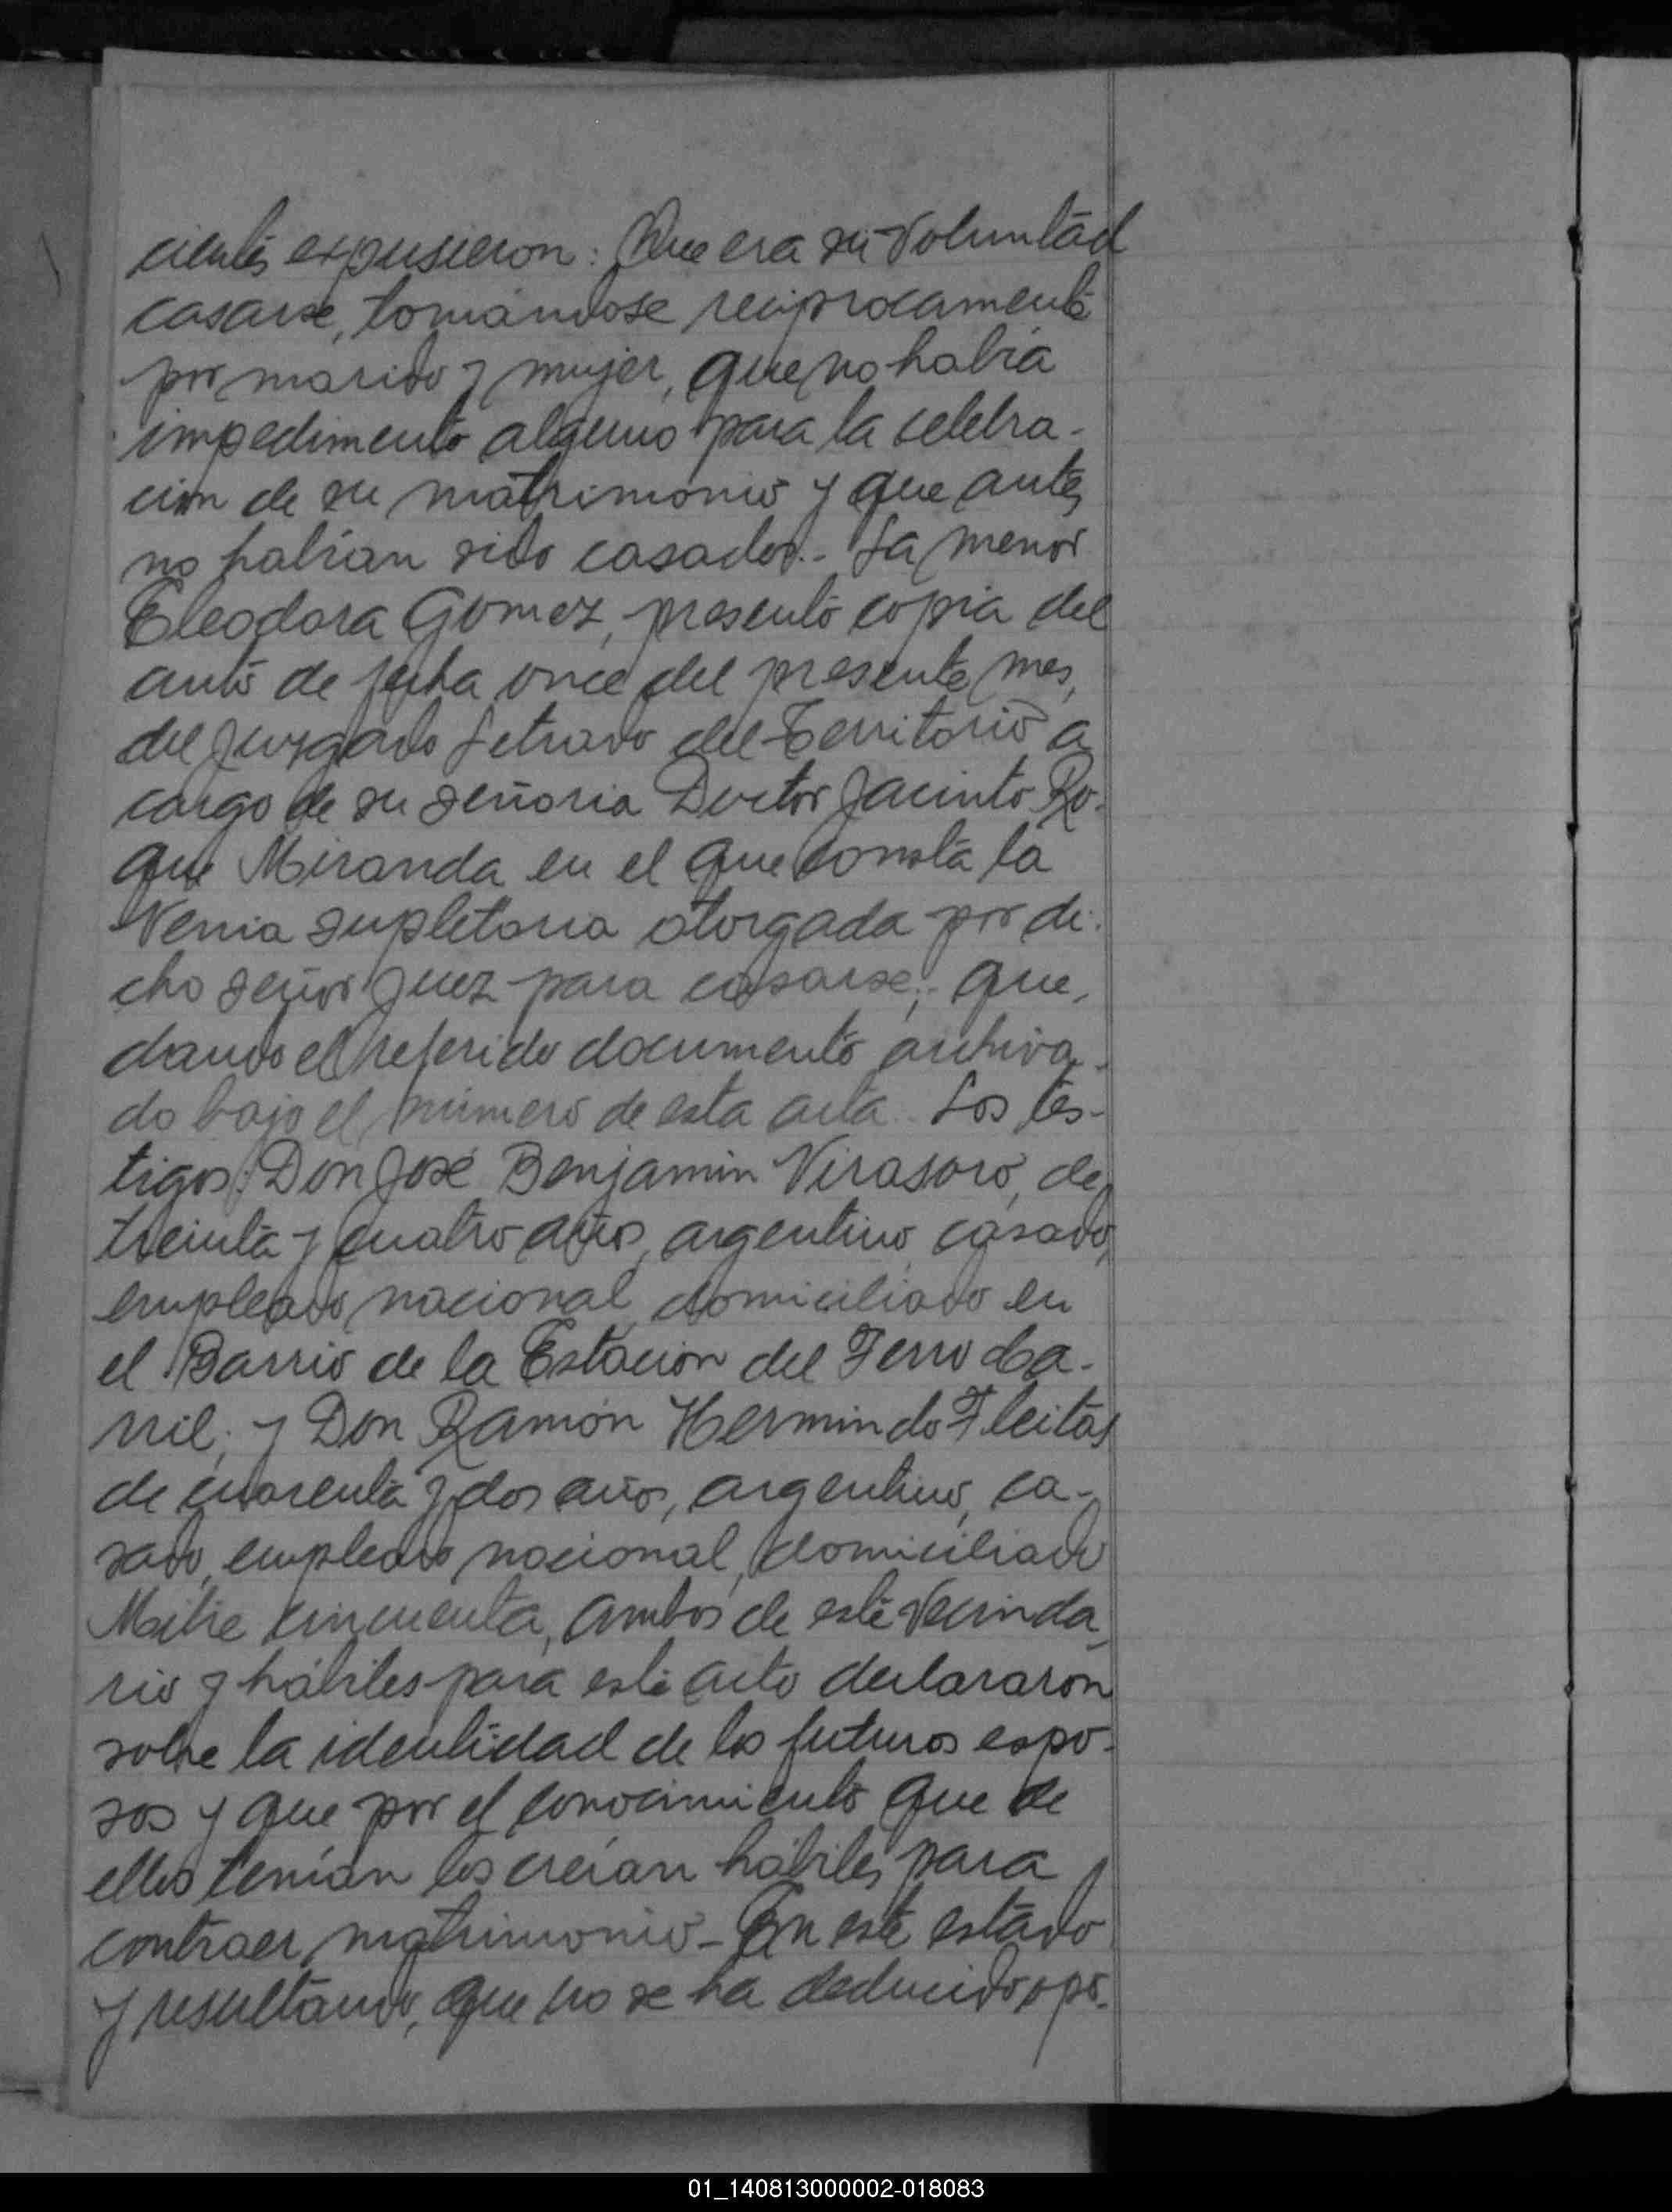 cientes expusieron: Que era su voluntad
casarse, tomándose reciprocamente
por marido y mujer, que no habia
impedimento alguno para la celebra-
cion de su matrimonio y que antes
no habian sido casados.- La menor
Eleodora Gomez, presentó copia del
auto de fecha once del presente mes,
del Juzgado Letrado del Territorio a
cargo de su señoria Doctor Jacinto Ro-
que Miranda en el que consta la
Venia supletoria otorgada por di-
cho señor Juez para casarse; que-
dando el referido documento archiva-
do bajo el número de esta acta. Los tes-
tigos: Don José Benjamin Virasoro, de
treinta y cuatro años, argentino, casado,
empleado nacional, domiciliado en
el Barrio de la Estacion del Ferro Ca-
rril; y Don Ramón Hermindo Fleitas
de cuarenta y dos años, argentino, ca-
sado, empleado nacional, domiciliado
Mitre cincuenta, ambos de este vecinda-
rio y hábiles para este acto declararon
sobre la identidad de los futuros espo-
sos y que por el conocimiento que de
ellos tenían los creían hábiles para
contraer matrimonio - En este estado
y resultando, que no se ha deducido opo-
01_140813000002-018083